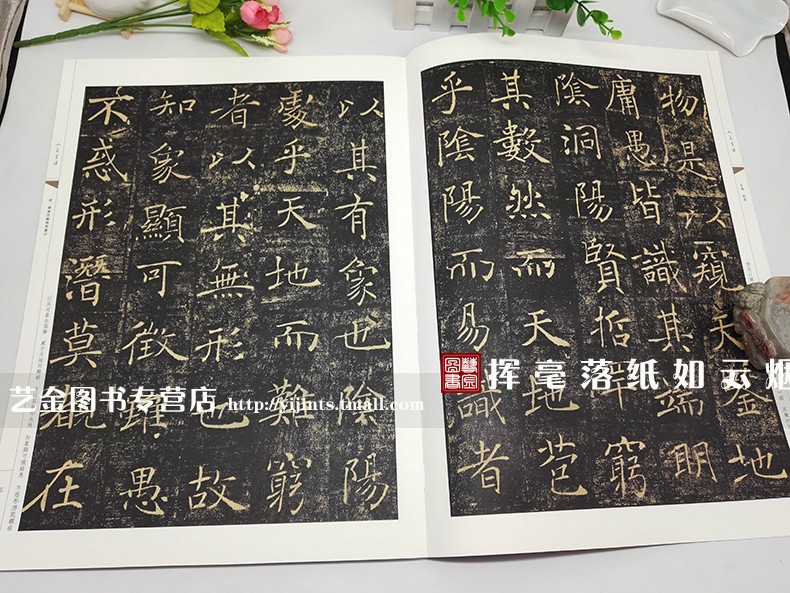 物是以窺天鑒地
庸愚皆識其端明
陰洞陽賢哲罕窮
其數然而天地苞
乎陰陽而易識者
以其有象也陰陽
處乎天地而難窮
者以其無形也故
知象顯可徵雖愚
不惑形潛莫覩在
艺金图书专营店 http://yijints.tmall.com
挥毫落纸如云烟